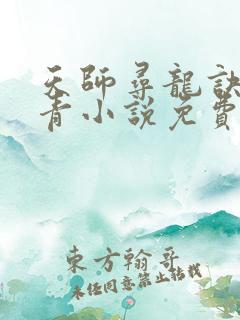 天師尋龍訣
青小說免費
東方翰哥
未任同意禁止轉載